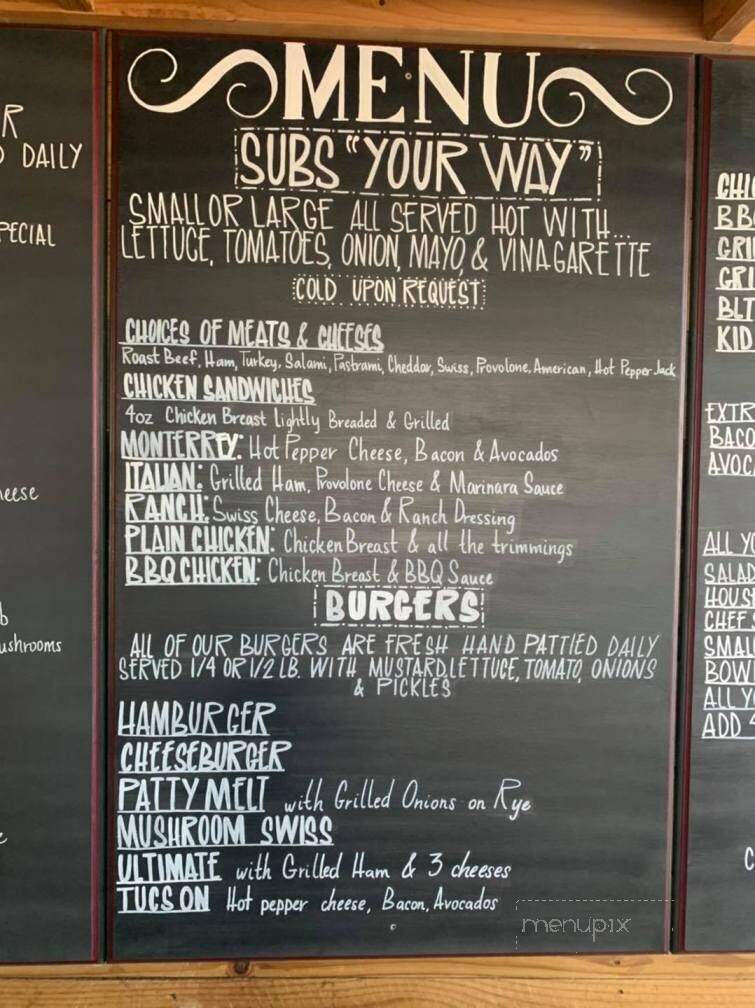 MENU
SUBS "YOUR WAY"
SMALL OR LARGE ALL SERVED HOT WITH...
LETTUCE, TOMATOES, ONION, MAYO, & VINAGARETTE
COLD UPON REQUEST
CHOICES OF MEATS & CHEESES
Roast Beef, Ham, Turkey, Salami, Pastrami, Cheddar, Swiss, Provolone, American, Hot Pepper Jack
CHICKEN SANDWICHES
4oz Chicken Breast Lightly Breaded & Grilled
MONTERREY: Hot Pepper Cheese, Bacon & Avocados
ITALIAN: Grilled Ham, Provolone Cheese & Marinara Sauce
RANCH: Swiss Cheese, Bacon & Ranch Dressing
PLAIN CHICKEN: Chicken Breast & all the trimmings
BBQ CHICKEN: Chicken Breast & BBQ Sauce
BURGERS
ALL OF OUR BURGERS ARE FRESH HAND PATTIED DAILY
SERVED 1/4 OR 1/2 LB. WITH MUSTARD, LETTUCE, TOMATO, ONIONS
& PICKLES
HAMBURGER
CHEESEBURGER
PATTY MELT with Grilled Onions on Rye
MUSHROOM SWISS
ULTIMATE with Grilled Ham & 3 cheeses
TUCSON Hot pepper cheese, Bacon, Avocados
menupix
R
DAILY
PECIAL
eese
b
ushrooms
CHIC
BB
GRI
GRI
BLT
KID
EXTR
BACO
AVOC
ALL YO
SALAD
HOUS
CHEF S
SMAL
BOW
ALL Y
ADD